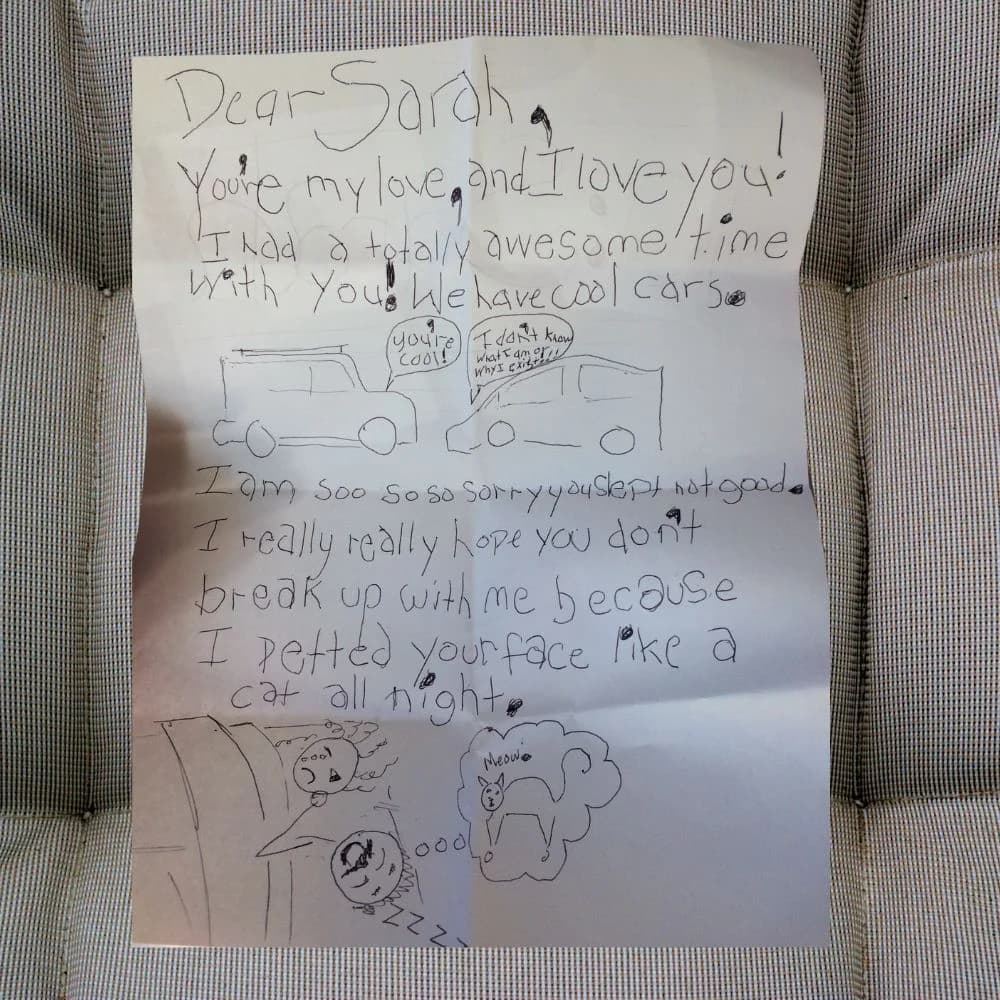 Dear Sarah,
You're my love, and I love you!
I had a totally awesome time
with you! We have cool cars.
you're
cool!
I don't know
what I am or
why I exist!!!
I am soo so so sorry you slept not good.
I really really hope you don't
break up with me because
I petted your face like a
cat all night.
Meow.
ooo
zzzz